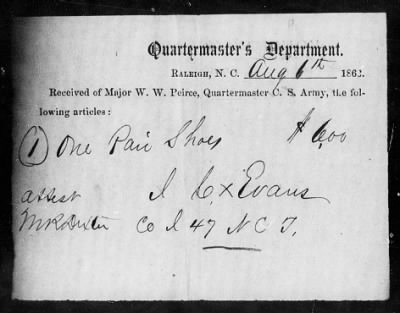 Quartermaster's Department.
RALEIGH, N. C. Aug 6th 1862.
Received of Major W. W. Peirce, Quartermaster C. S. Army, the fol-
lowing articles:
(1) One Pair Shoes $6,00
attest I L x Evans
Co I 47 N C T.